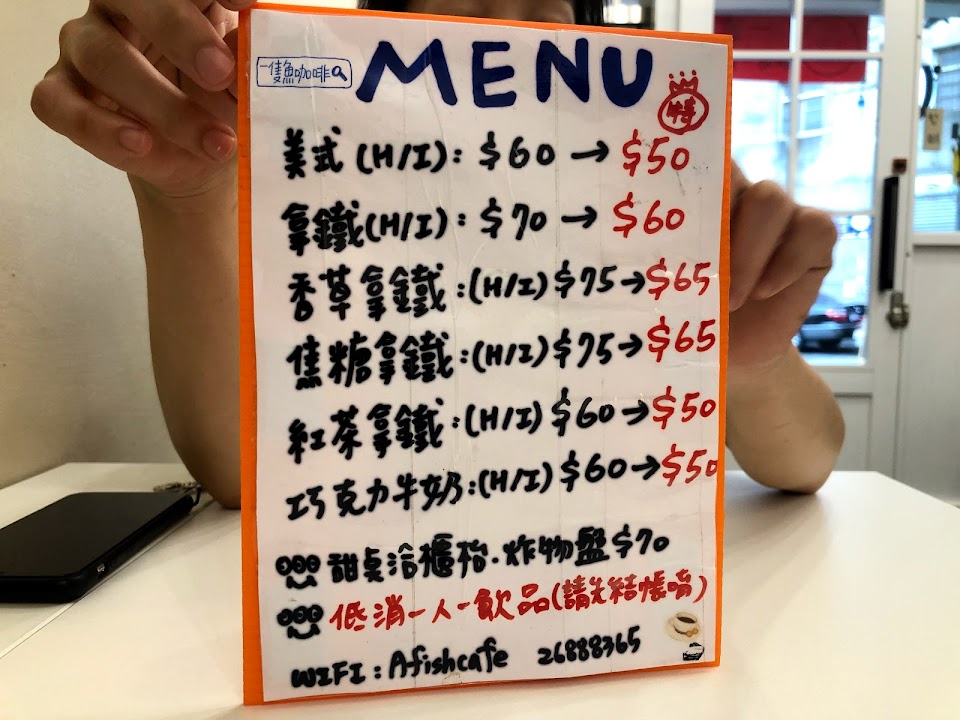 一隻魚咖啡
MENU
特
美式(H/I): $60 → $50
拿鐵(H/I): $70 → $60
香草拿鐵:(H/I) $75→$65
焦糖拿鐵:(H/I) $75→$65
紅茶拿鐵:(H/I) $60→$50
巧克力牛奶:(H/I) $60→$50
甜桌洽櫃枱·炸物盤$70
低消一人一飲品(請先結帳唷)
WIFI: Afishcafe 26888365